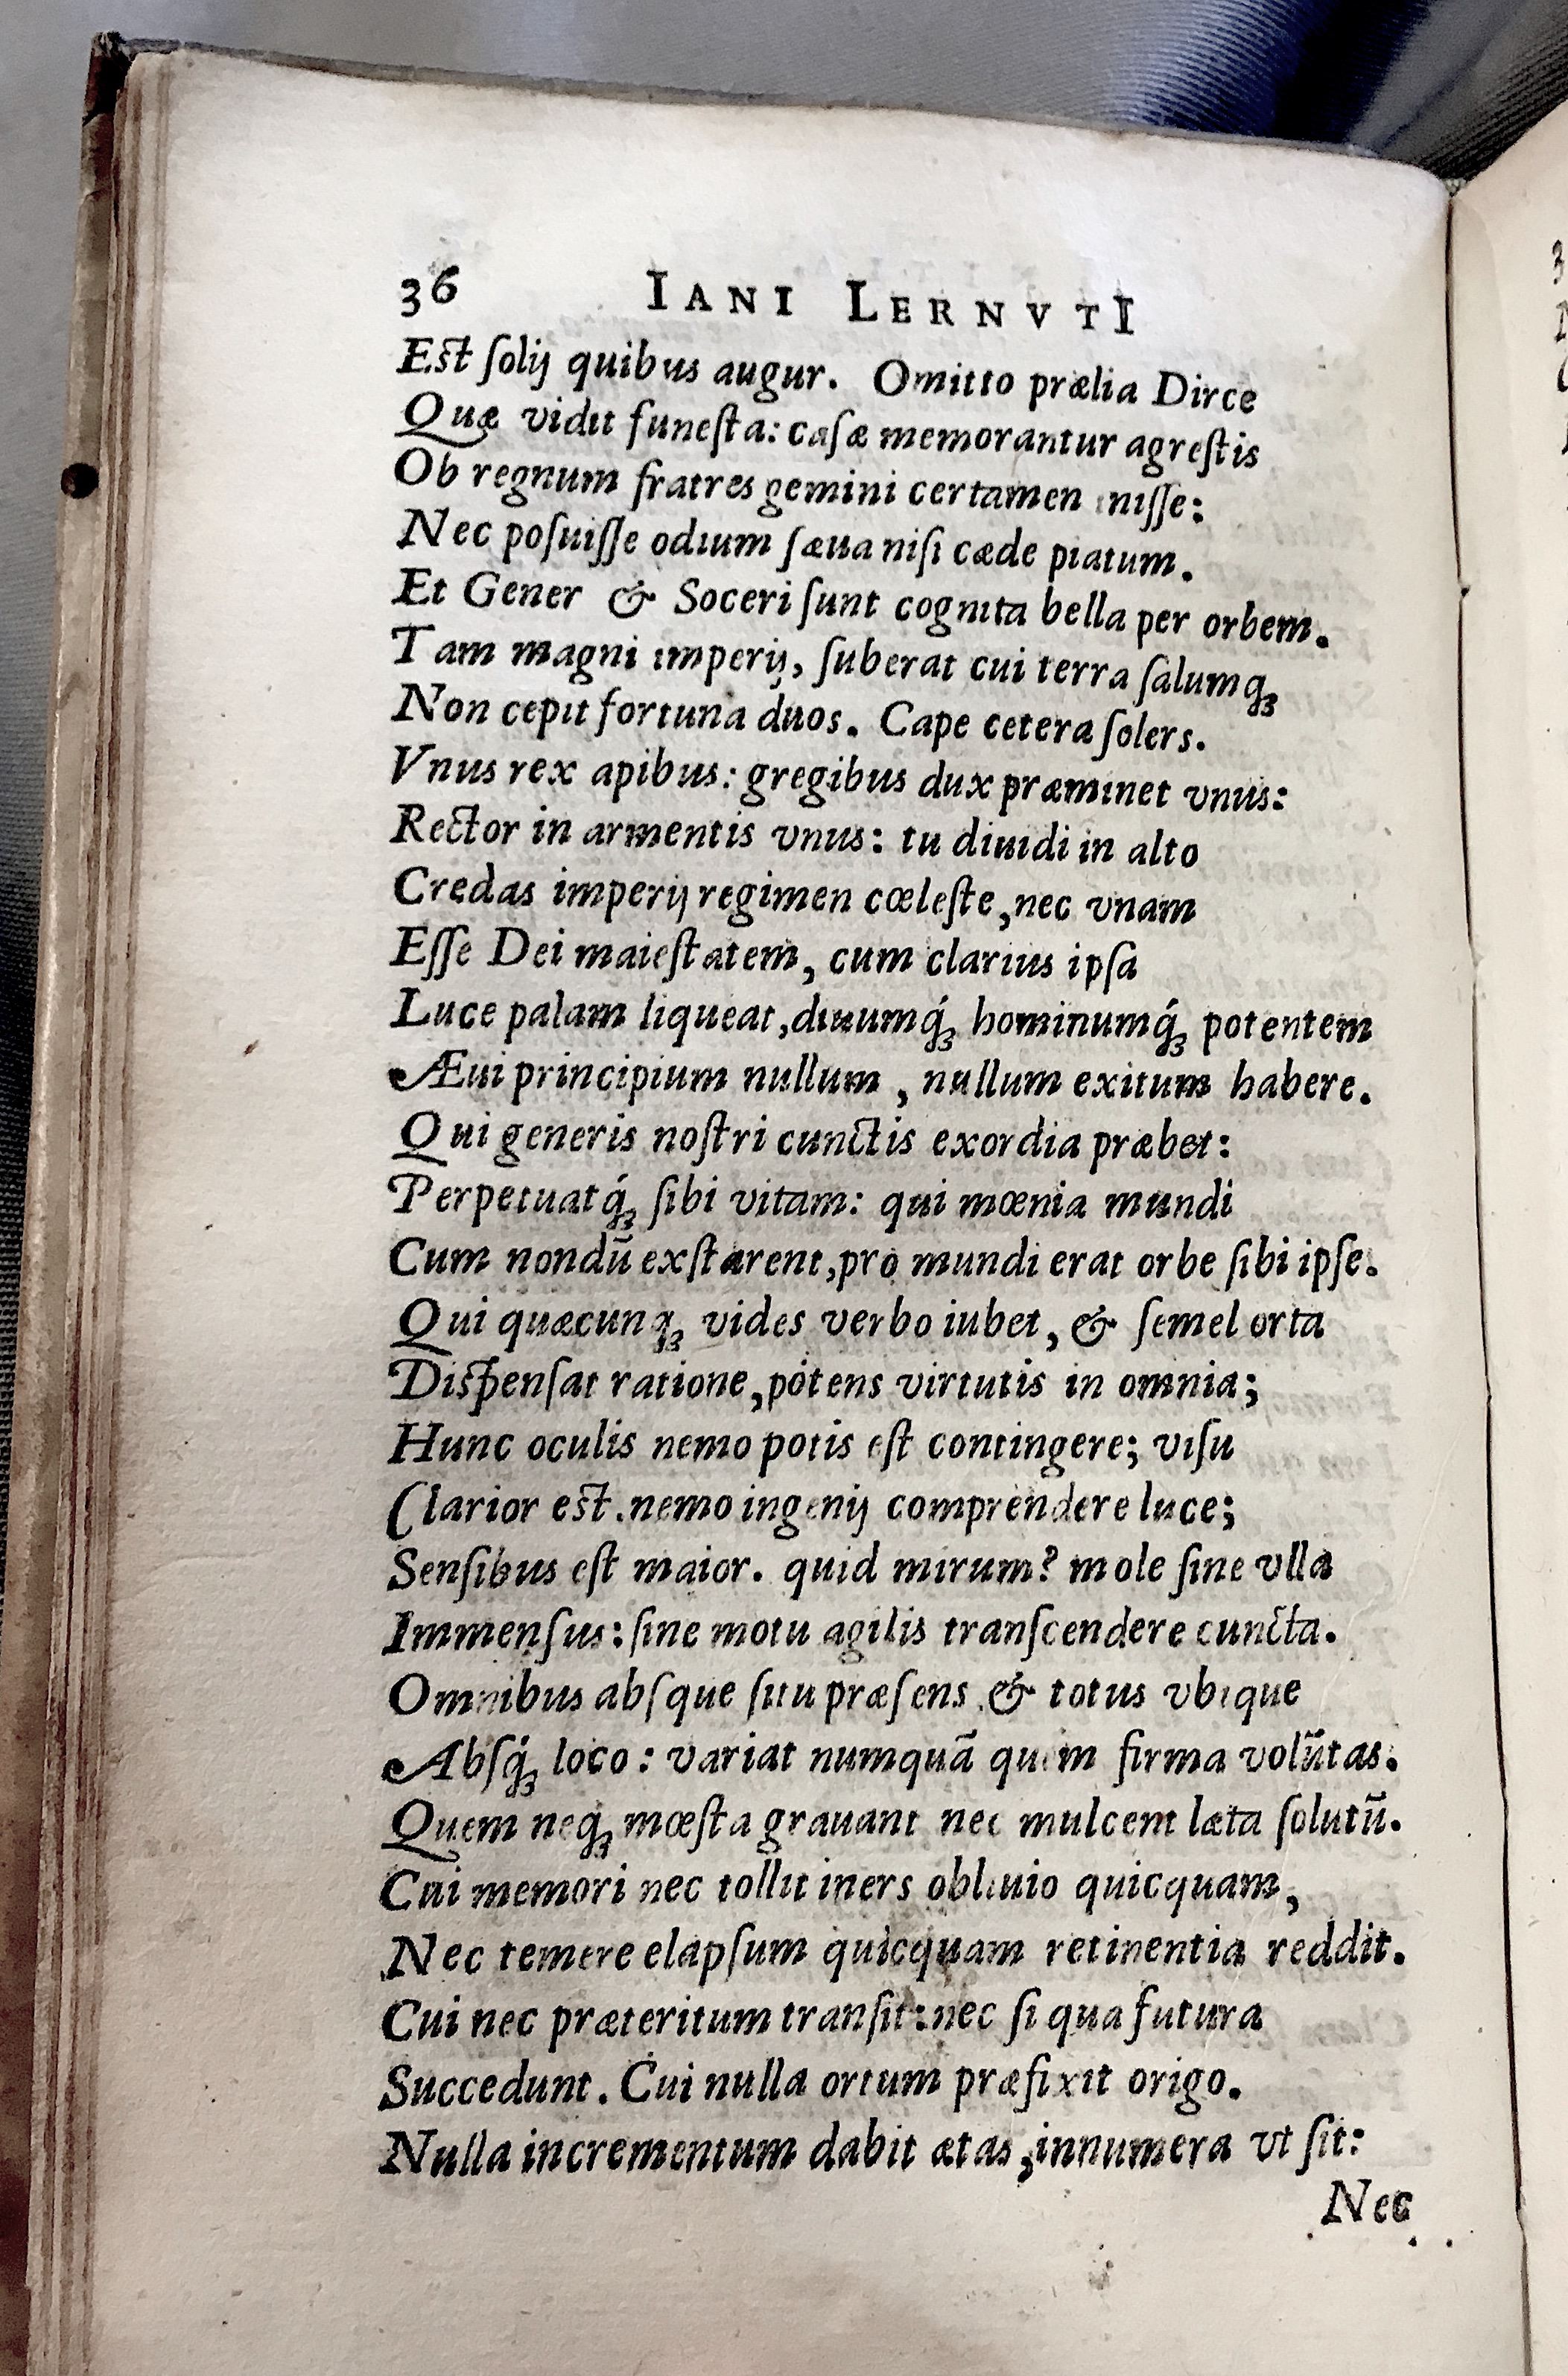 36 IANI LERNVTI
Est ſolij quibus augur. Omitto prælia Dirce
Quæ vidit funeſta: caſæ memorantur agreſtis
Ob regnum fratres gemini certamen iniſſe:
Nec poſuiſſe odium ſæua niſi cæde piatum.
Et Gener & Soceri ſunt cognita bella per orbem.
Tam magni imperij, ſuberat cui terra ſalumq́ꝫ
Non cepit fortuna duos. Cape cetera ſolers.
Vnus rex apibus: gregibus dux præminet vnus:
Rector in armentis vnus: tu diuidi in alto
Credas imperij regimen cœleſte, nec vnam
Eſſe Dei maieſtatem, cum clarius ipſa
Luce palam liqueat, diuumq́ꝫ hominumq́ꝫ potentem
Æui principium nullum, nullum exitum habere.
Qui generis noſtri cunctis exordia præbet:
Perpetuatq́ꝫ ſibi vitam: qui mœnia mundi
Cum nondū exſtarent, pro mundi erat orbe ſibi ipſe.
Qui quæcunqꝫ vides verbo iubet, & ſemel orta
Diſpenſat ratione, potens virtutis in omnia;
Hunc oculis nemo potis eſt contingere; viſu
Clarior est. nemo ingenij comprendere luce;
Senſibus eſt maior. quid mirum? mole ſine vlla
Immenſus: ſine motu agilis tranſcendere cuncta.
Omnibus abſque ſitu præſens & totus vbique
Abſq́ꝫ loco: variat numquā quem firma volūtas.
Quem neqꝫ mœſta grauant nec mulcent læta ſolutū.
Cui memori nec tollit iners obliuio quicquam,
Nec temere elapſum quicquam retinentia reddit.
Cui nec præteritum tranſit: nec ſi qua futura
Succedunt. Cui nulla ortum præfixit origo.
Nulla incrementum dabit ætas, innumera vt ſit:
Nec